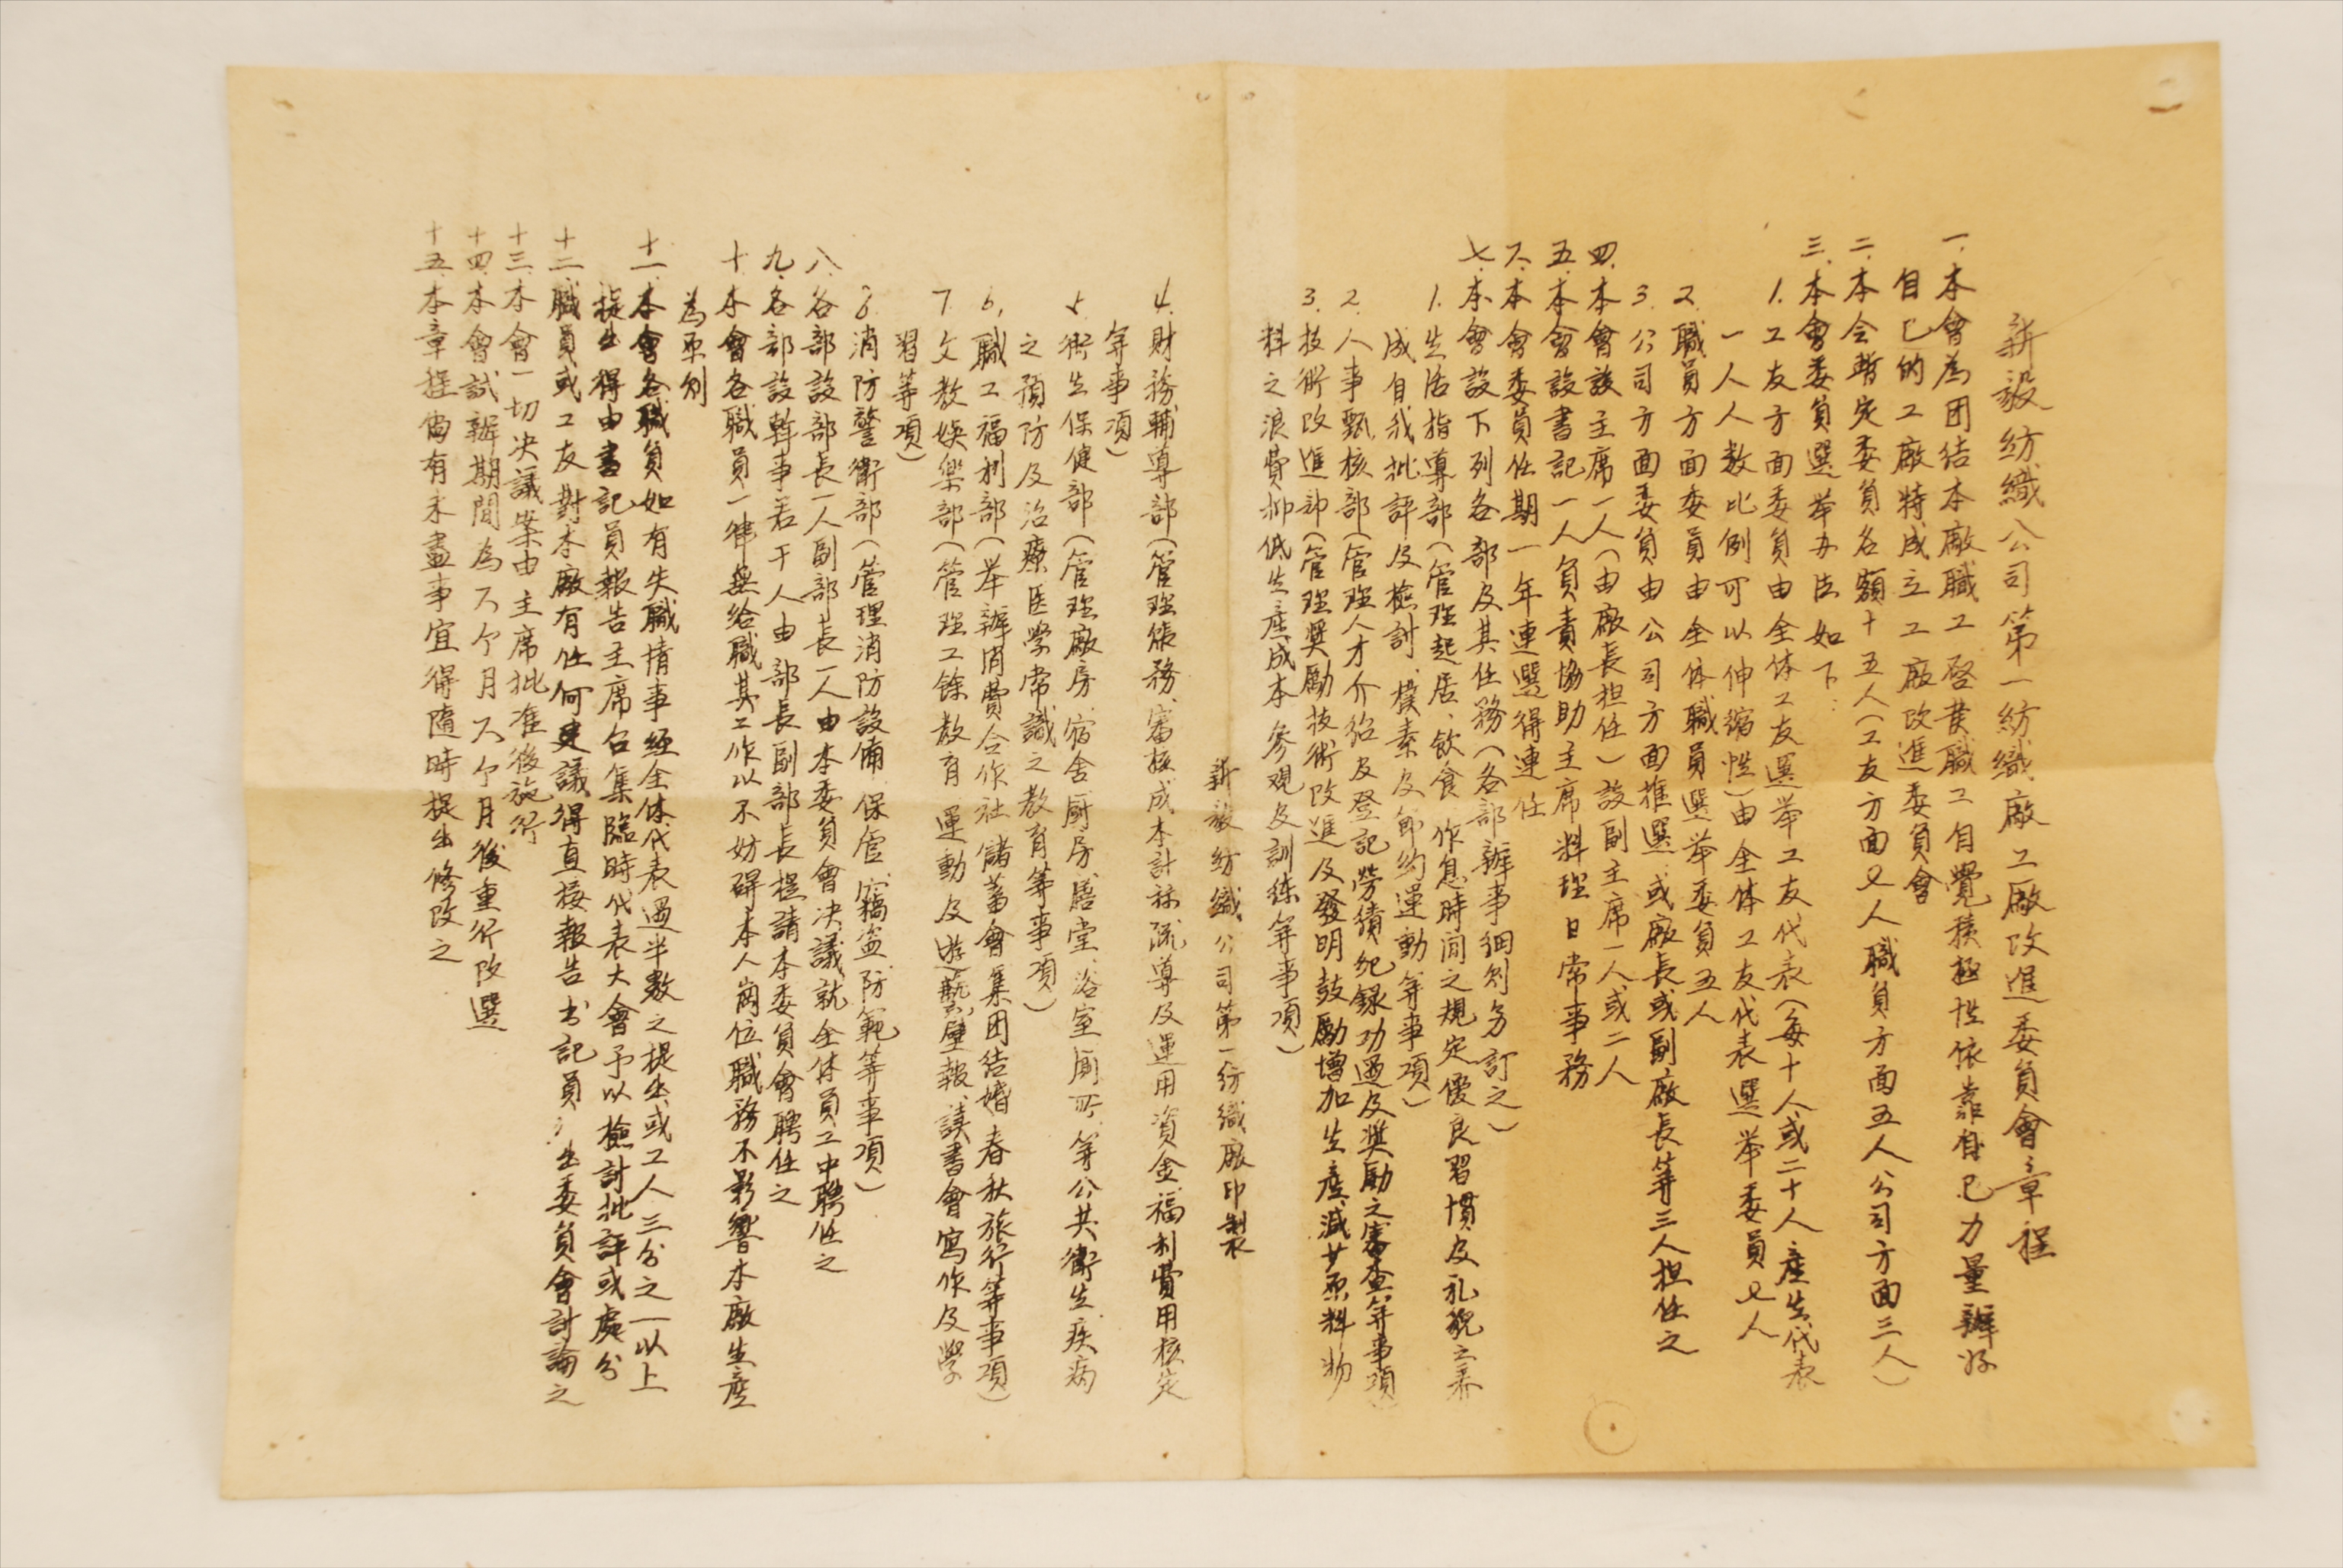 新毅紡織公司第一紡織廠工廠改進委員會章程
一、本會為团结本廠職工啓發職工自覺積極性依靠自己力量辦好
自己的工廠特成立工廠改進委員會
二、本会暫定委員名額十五人(工友方面七人職員方面五人公司方面三人)
三、本會委員選举办法如下:
1.工友方面委員由全体工友選举工友代表(每十人或二十人產生代表
一人人数比例可以伸縮性)由全体工友代表選举委員七人
2.職員方面委員由全体職員選举委員五人
3.公司方面委員由公司方面推選或廠長或副廠長等三人担任之
四、本會設主席一人(由廠長担任)設副主席一人或二人
五、本會設書記一人負責協助主席料理日常事務
六、本會委員任期一年連選得連任
七、本會設下列各部及其任務(各部辦事细则另訂之)
1.生活指導部(管理起居、飲食、作息時间之規定優良習慣及礼貌之養
成自我批評及檢討、樸素及節约運動等事項)
2.人事甄核部(管理人才介紹及登記勞績纪錄功過及奬勵之審查等事項)
3.技術改進部(管理奬勵技術改進及發明鼓勵增加生產減少原料物
料之浪費抑低生產成本參观及訓练等事項)
新毅紡織公司第一紡織廠印製
4.財務輔導部(管理賬務、審核成本計秝疏導及運用資金福利費用核定
等事項)
5.衛生保健部(管理廠房、宿舍厨房膳堂、浴室厠所、等公共衛生、疾病
之預防及治療医學常識之教育等事項)
6.職工福利部(举辦消費合作社儲蓄會集团结婚春秋旅行等事項)
7.文教娛樂部(管理工餘教育運動及遊藝壁報、讀書會寫作及學
習等項)
8.消防警衛部(管理消防設備保管、竊盗防範等事項)
八、各部設部長一人副部長一人由本委員會决議就全体員工中聘任之
九、各部設幹事若干人由部長副部長提請本委員會聘任之
十、本會各職員一律無給職其工作以不妨碍本人崗位職務不影響本廠生產
為原则
十一、本會各職員如有失職情事經全体代表過半数之提出或工人三分之一以上
提出得由書記員報告主席召集臨時代表大會予以檢討批評或處分
十二、職員或工友對本廠有任何建議得直接報告书記員出委員會討論之
十三、本會一切决議案由主席批准後施行
十四、本會試辦期間為六个月六个月後重行改選
十五、本章程倘有未盡事宜得隨時提出修改之